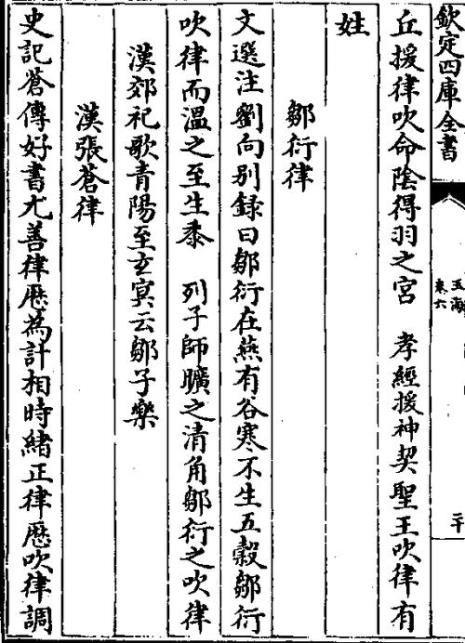 欽定四庫全書
玉海
卷六
二十
丘援律吹命陰得羽之宮　孝經援神契聖王吹律有
姓
鄒衍律
文選注劉向別録曰鄒衍在燕有谷寒不生五穀鄒衍
吹律而溫之至生黍　列子師曠之清角鄒衍之吹律
漢郊祀歌青陽至玄冥云鄒子樂
漢張蒼律
史記蒼傳好書尤善律厯為計相時緒正律厯吹律調